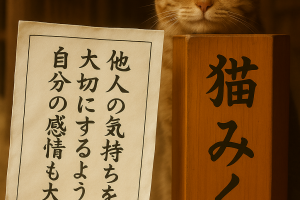 他人の気持ちを
大切にするよう
自分の感情も大
猫みく